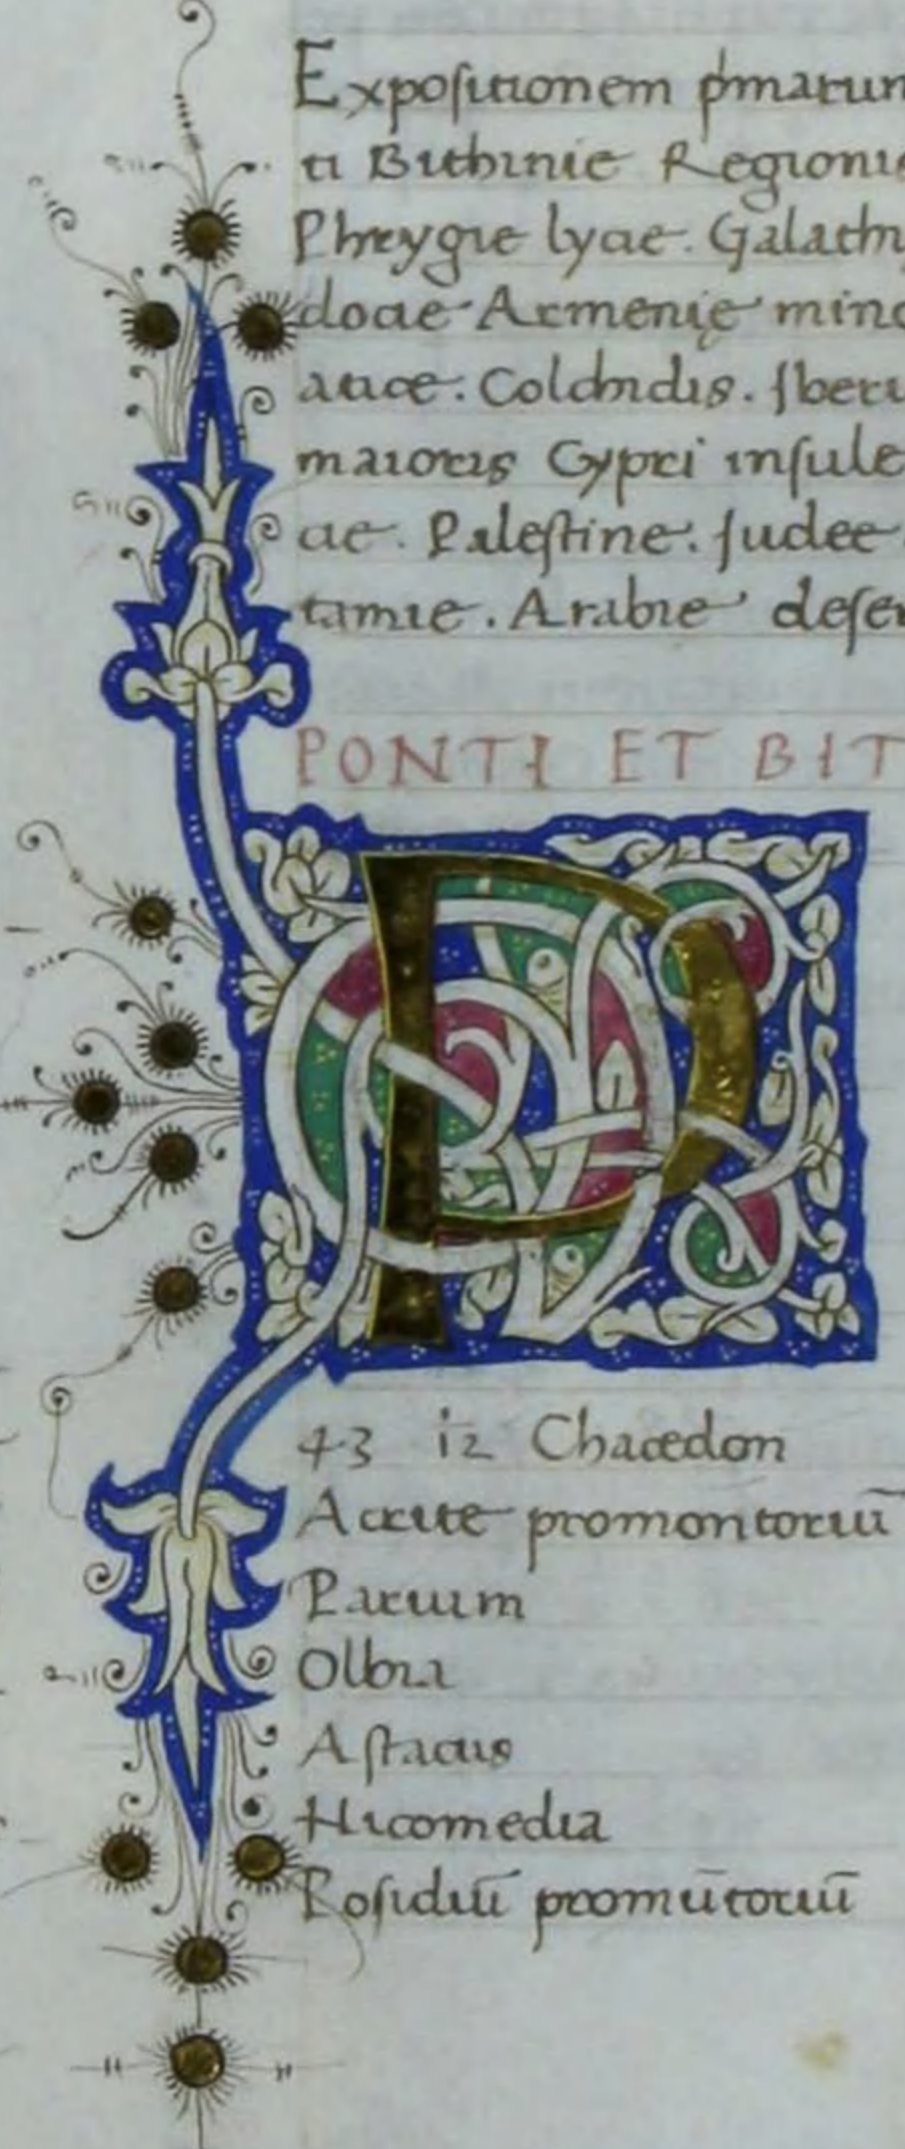 Expoſitionem pͥmarum
ti Bithinie Regionis
Phreygie lycie. Galathi
docie Armenię mino
atice. Colchidis. Iberi
maioris Cypri inſule
cie. Paleſtine. Iudee
tamie. Arabie deſer
PONTI ET BIT
P
43 12 Chacedon
Acrite promontoriū
Parium
Olbia
Aſtacus
Nicomedia
Poſidiū promūtoriū